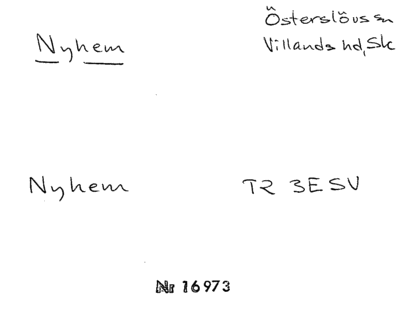 Nyhem
Österslövs sn
Villands hd, Sk
Nyhem
TR 3E SV
Nr 16973